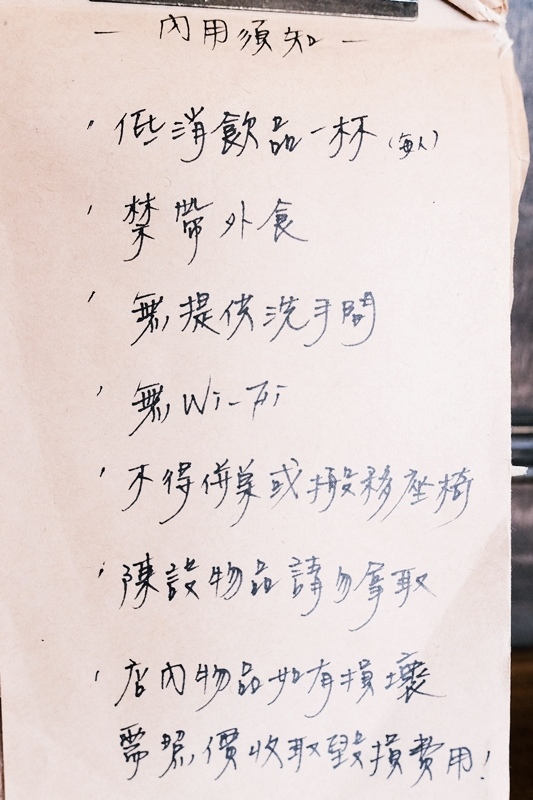 — 內用須知 —
、低消飲品一杯(每人)
、禁帶外食
、無提供洗手間
、無Wi-Fi
、不得併桌或搬移座椅
、陳設物品請勿拿取
、店內物品如有損壞
需照價收取毀損費用!